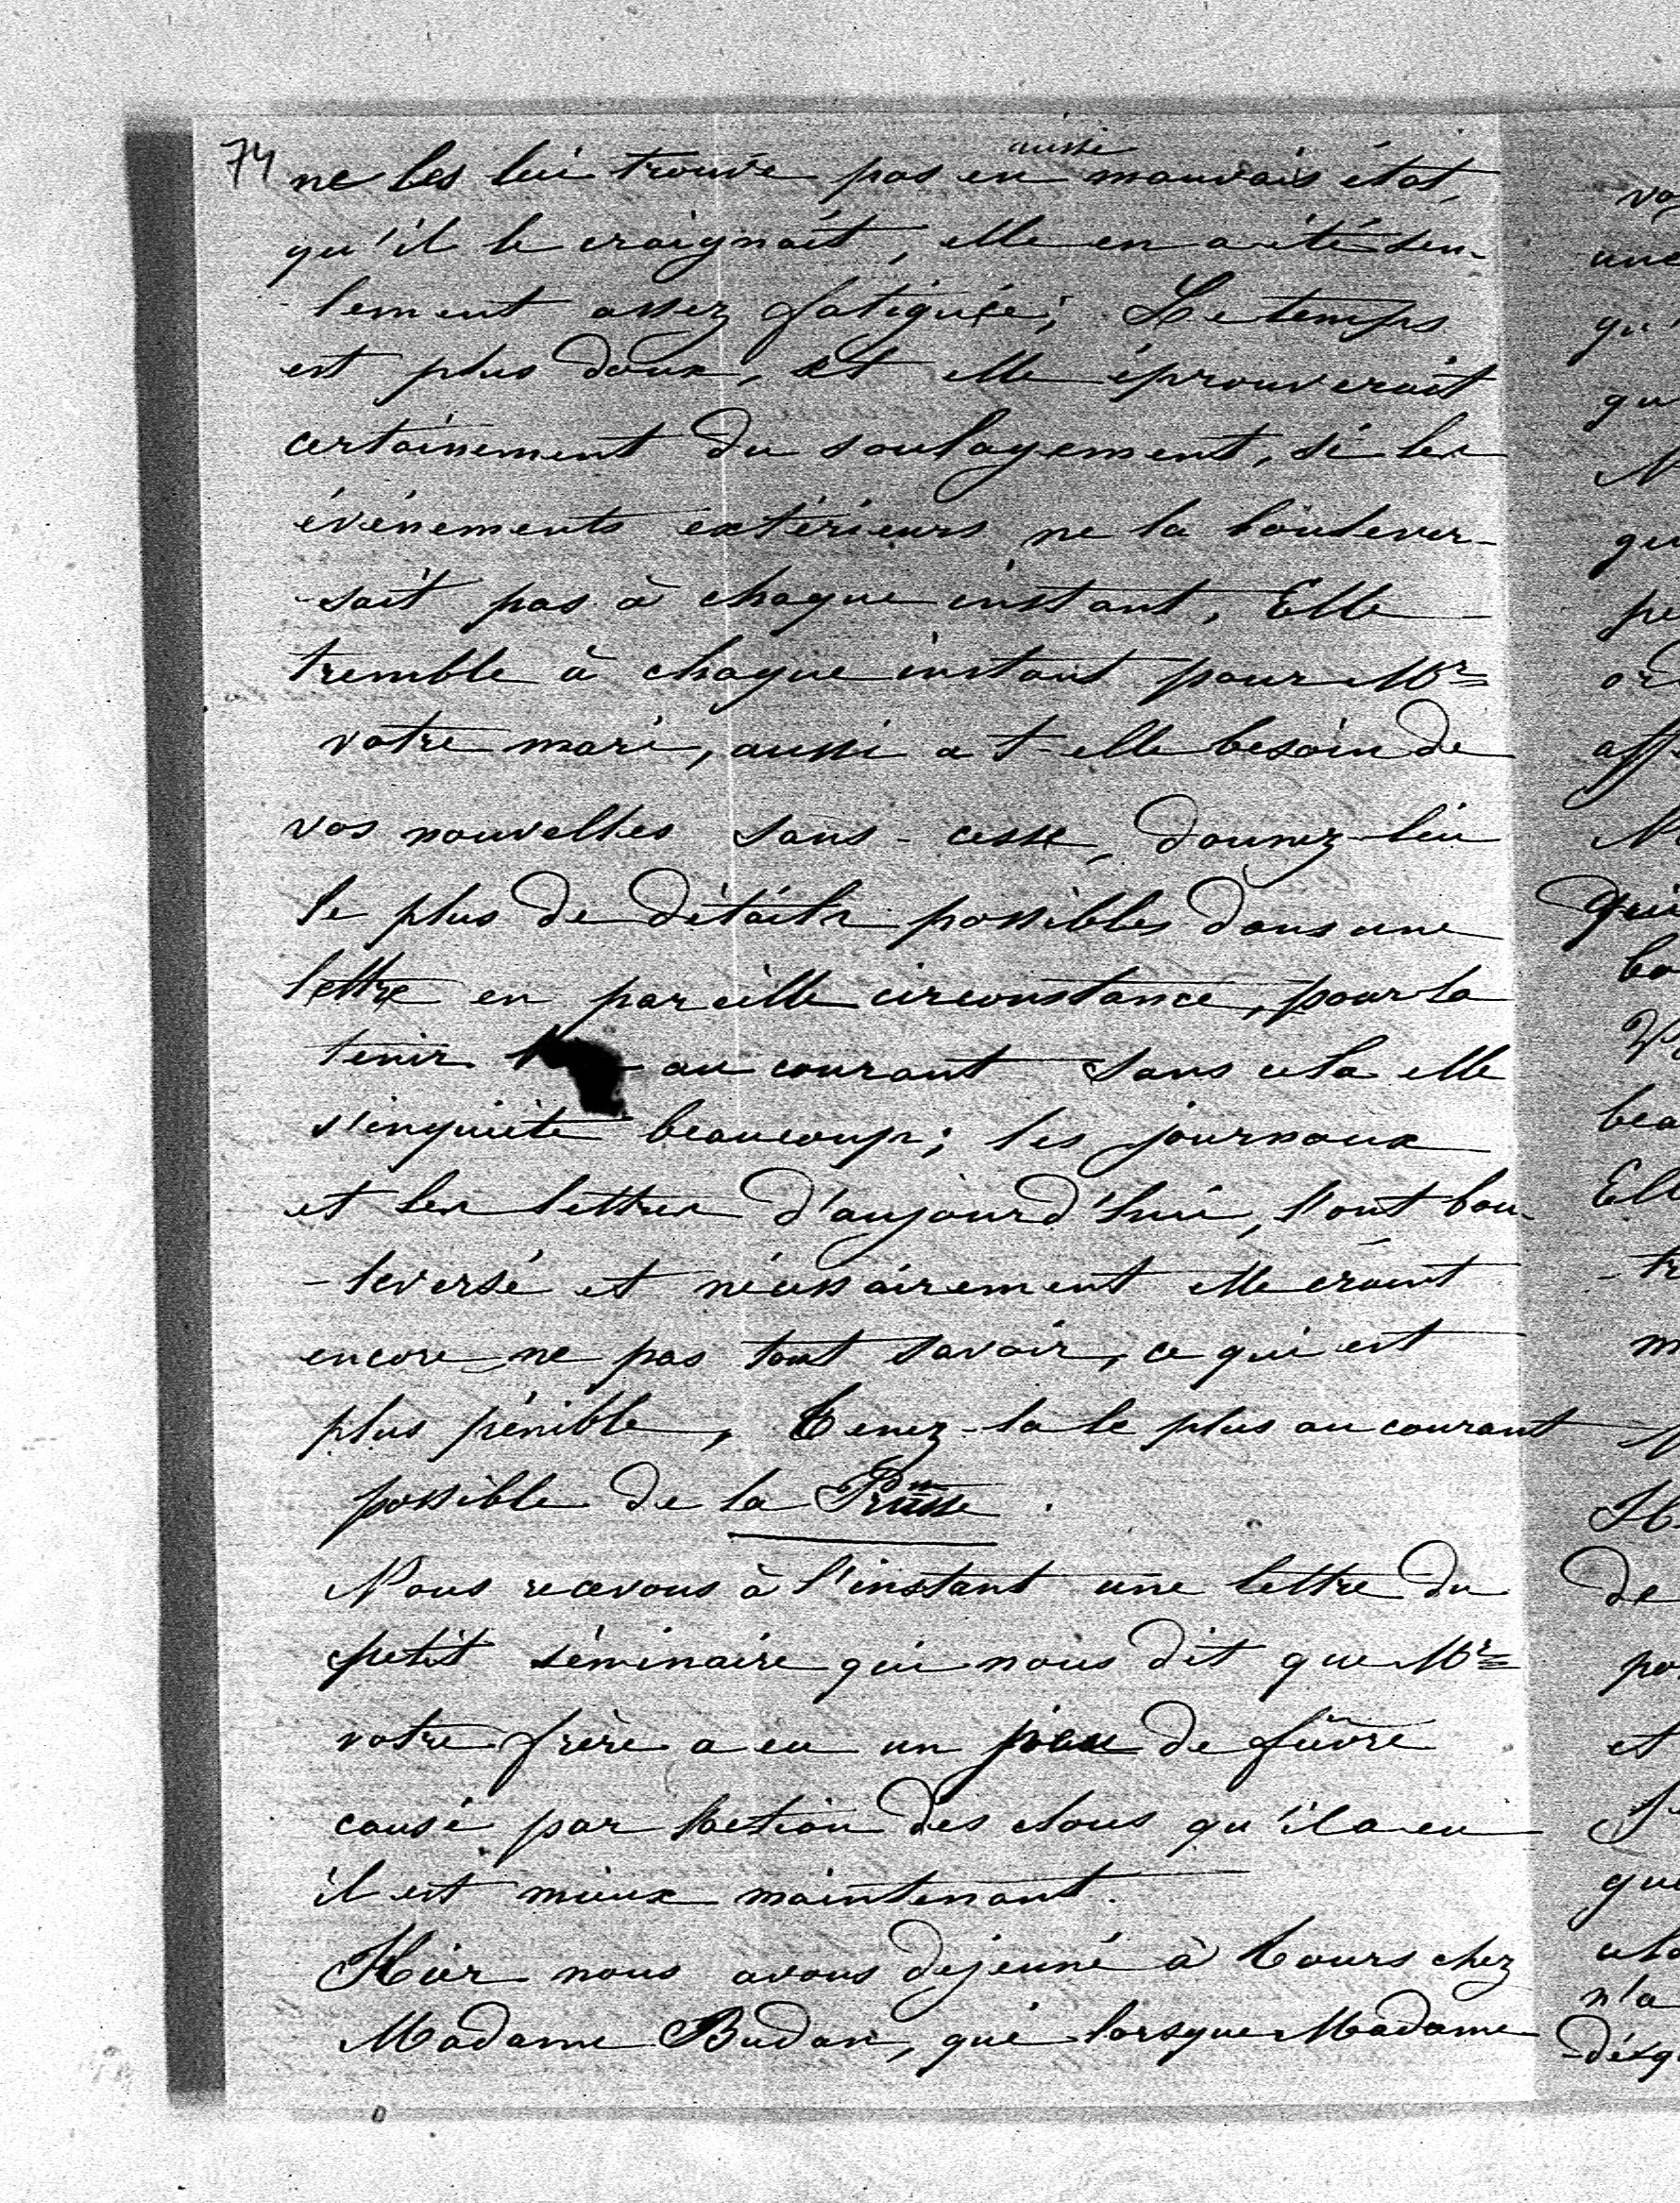 74
aussi
ne les lui trouve pas en mauvais état,
qu'il le craignait, elle en a été seu-
lement assez fatiguée; Le temps
est plus doux, et elle éprouverait
certainement du soulagement, si les
événements extérieurs ne la boulever-
-sait pas à chaque instant, Elle
tremble à chaque instant pour Mr
votre mari, aussi a t-elle besoin de
vos nouvelles sans-cesse, donnez-lui
le plus de détails possibles dans une
lettre en pareille circonstance, pour la
tenir au courant sans cela elle
s'inquiète beaucoup; les journaux
et les lettres d'aujourd'hui, l'ont bou-
-leversé et nécessairement elle craint
encore ne pas tout savoir, ce qui est
plus pénible, Tenez-la le plus au courant
possible de la Prusse.
Nous recevons à l'instant une lettre du
petit séminaire qui nous dit que Mr
votre frère a eu un peu de fièvre
causé par l'action des clous qu'il a eu
il est mieux maintenant.
Hier nous avons dejeuné à Tours chez
Madame Budan, qui lorsque Madame